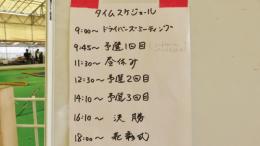 タイムスケジュール
9:00～ ドライバーズミーティング
9:45～ 予選1回目
11:30～ 昼休み
12:30～ 予選2回目
14:10～ 予選3回目
16:10～ 決勝
18:00～ 表彰式